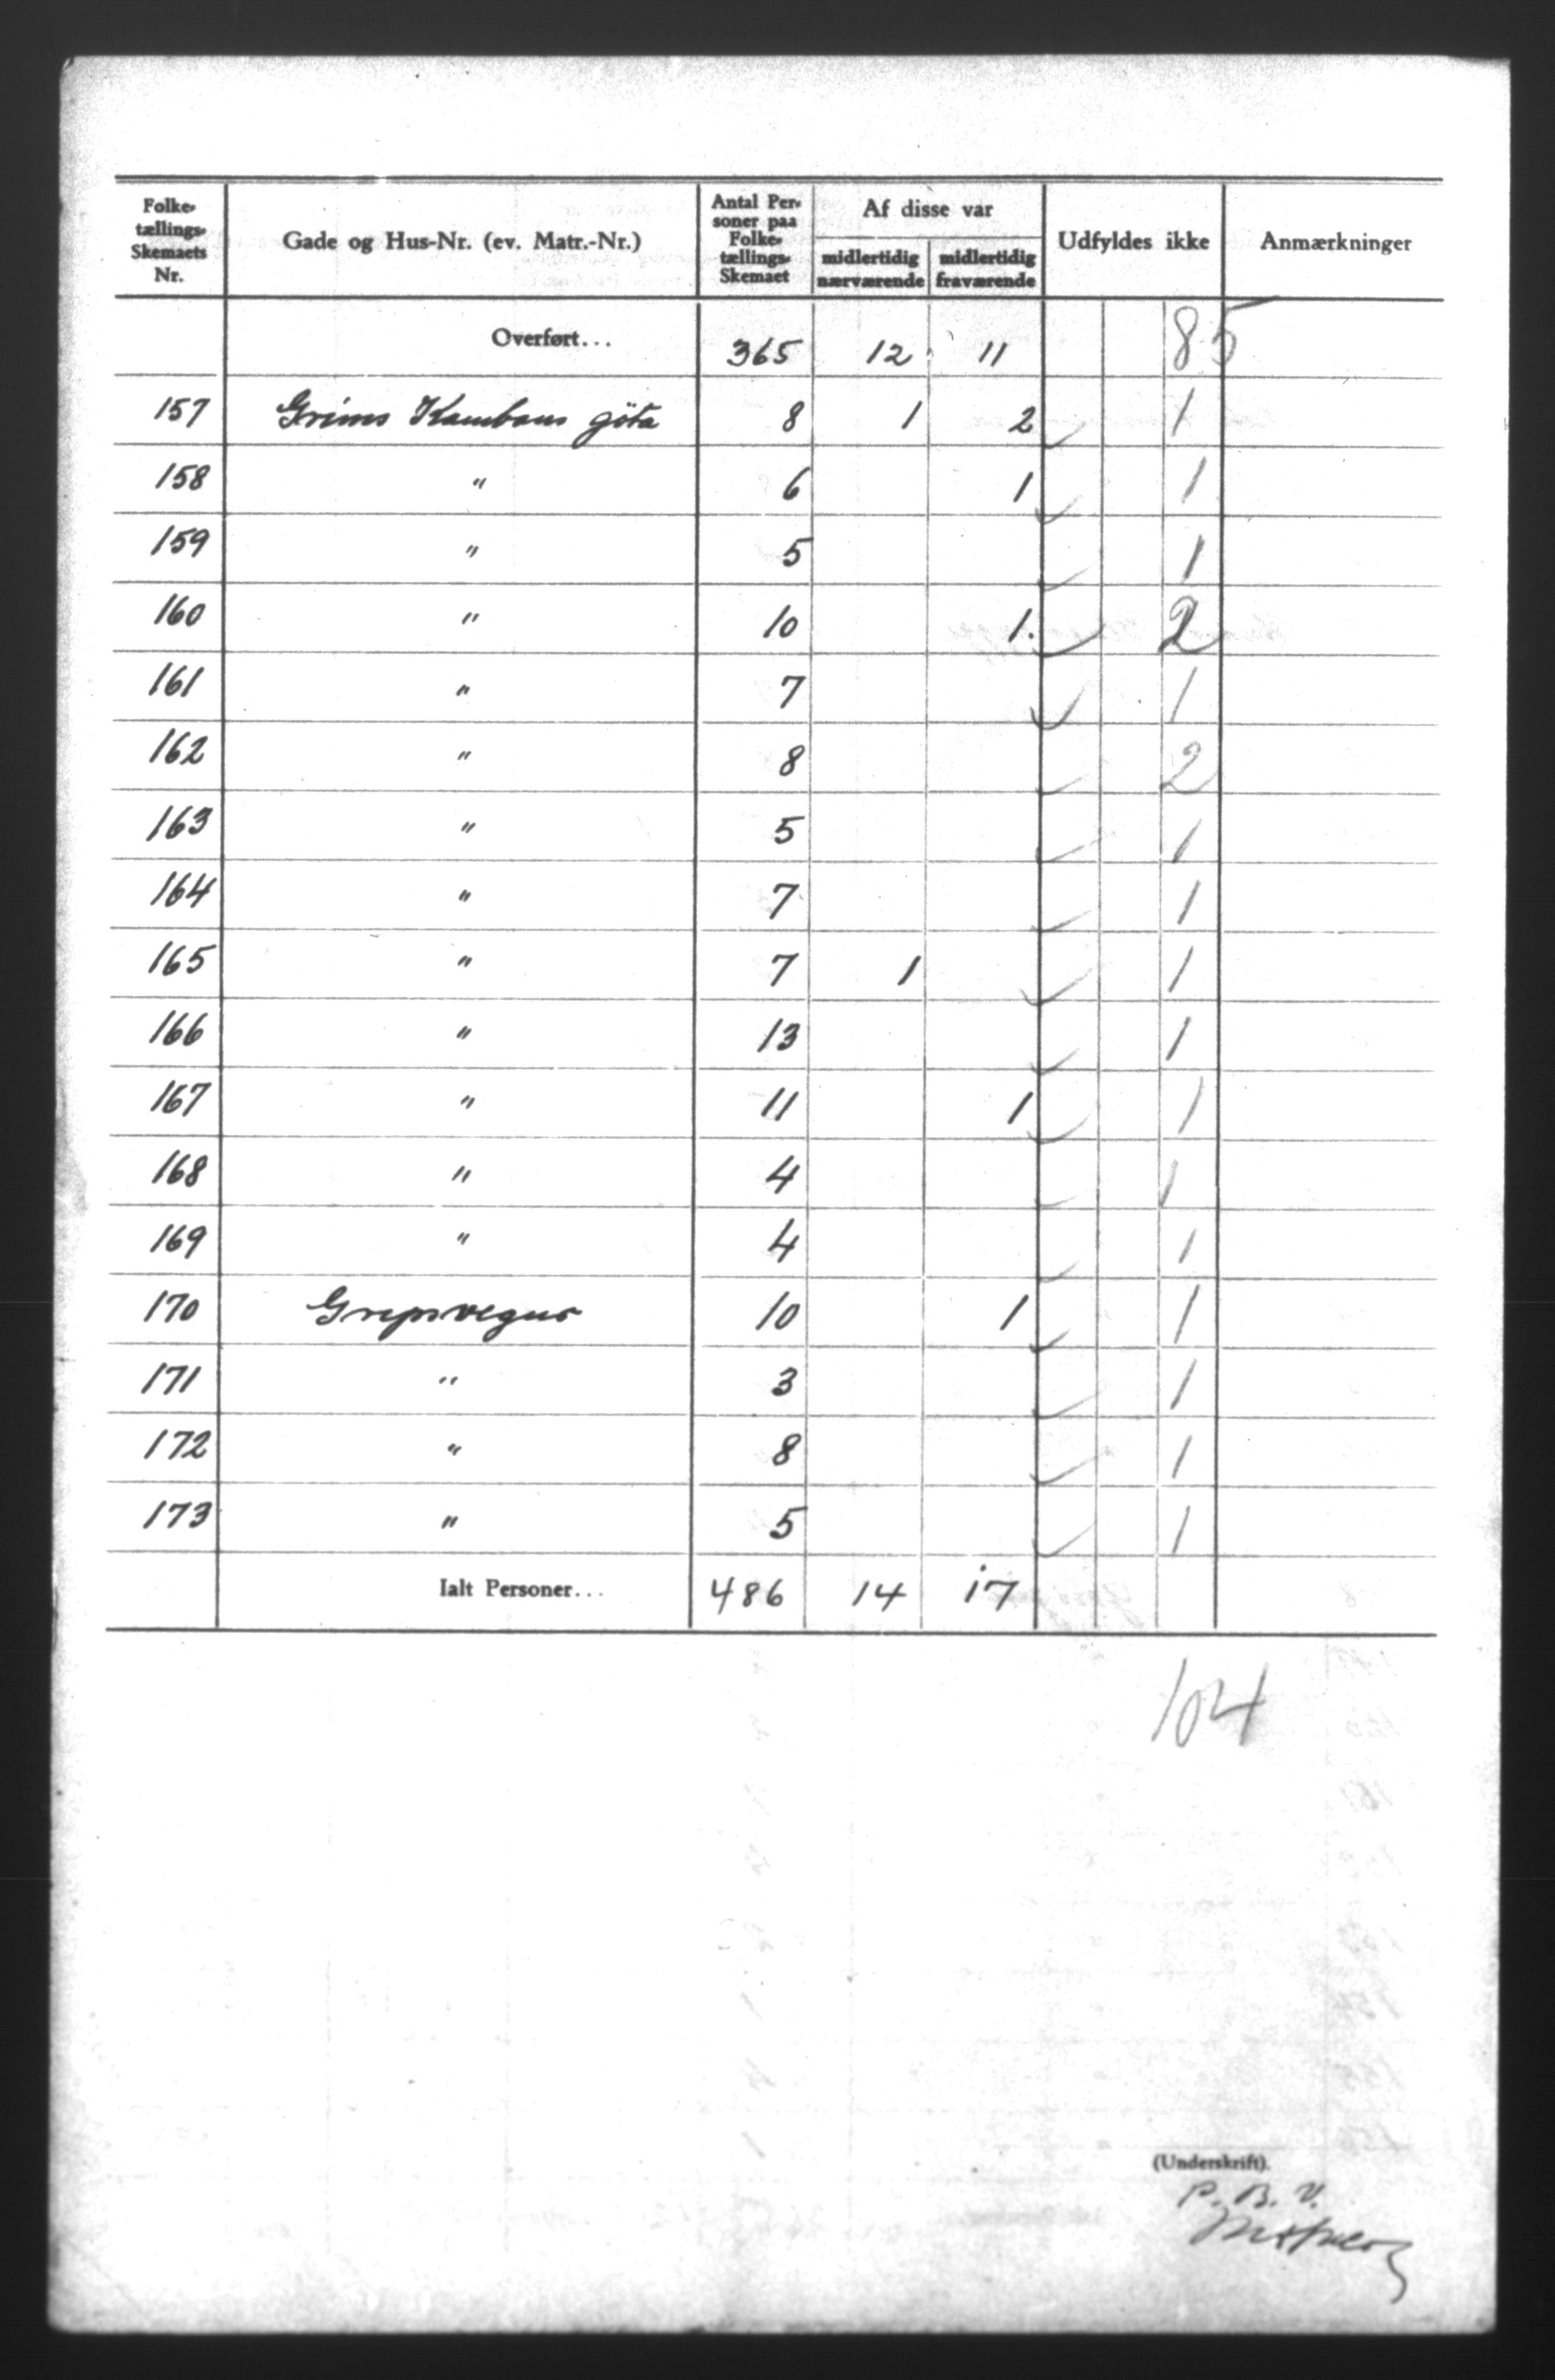 Folke-tællings-Skemaets Nr. | Gade og Hus-Nr. (ev. Matr.-Nr.) | Antal Per-soner paa Folke-tællings-Skemaet | Af disse var midlertidig nærværende | midlertidig fraværende | Udfyldes ikke | Anmærkninger
Overført... 365 12 11 85
157 Gríms Kambans göta 8 1 2 1
158 " 6 1 1
159 " 5 1
160 " 10 1. 2
161 " 7 1
162 " 8 2
163 " 5 1
164 " 7 1
165 " 7 1 1
166 " 13 1
167 " 11 1 1
168 " 4 1
169 " 4 1
170 Gripsvegur 10 1 1
171 " 3 1
172 " 8 1
173 " 5 1
Ialt Personer... 486 14 17
104
(Underskrift).
P. B. V.